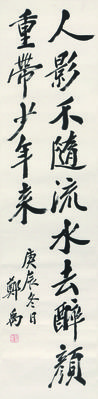 人影不隨流水去醉顏
重帶少年来
庚辰冬日
鄭